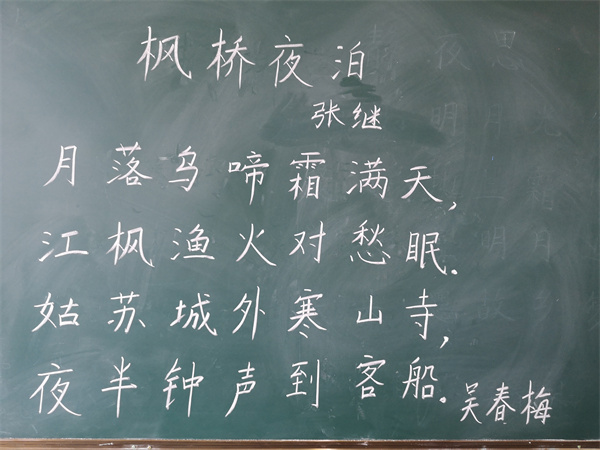 枫桥夜泊
张继
月落乌啼霜满天,
江枫渔火对愁眠.
姑苏城外寒山寺,
夜半钟声到客船.
吴春梅